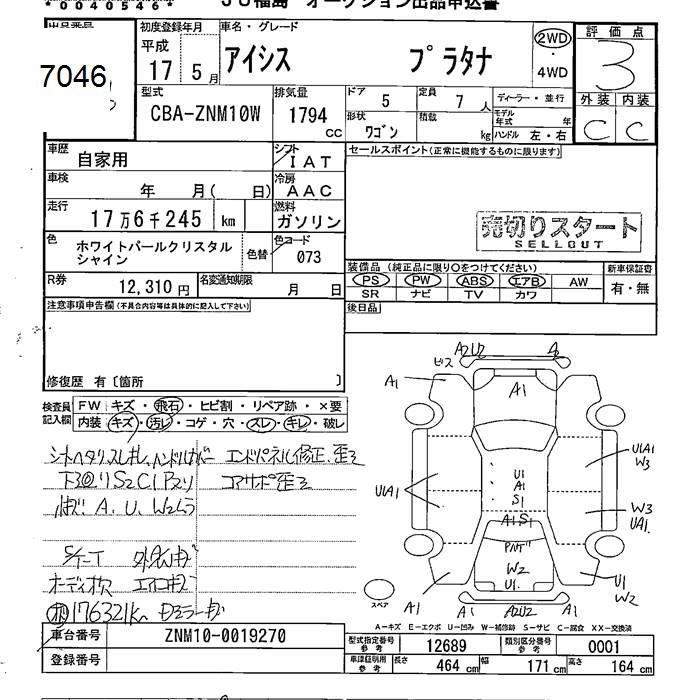 *0040546*
JU福島 オークション出品申込書
出品番号
7046
初度登録年月
平成
17 5月
車名・グレード
アイシス プラタナ
2WD
・
4WD
評価点
3
外装 内装
C C
型式
CBA-ZNM10W
排気量
1794
CC
ドア
5
定員
7人
ディーラー・並行
形状
ワゴン
積載
kg
モデル年式 年
ハンドル 左・右
車歴
自家用
シフト
IAT
セールスポイント(正常に機能するものに限ります)
車検
年 月( 日)
冷房
AAC
走行
17万6千245 km
燃料
ガソリン
売切りスタート
SELLOUT
色
ホワイトパールクリスタル
シャイン
色替
色コード
073
装備品(純正品に限り○をつけてください)
新車保証書
PS PW ABS エアB AW
SR ナビ TV カワ
有・無
R券
12,310円
名変通知期限
月 日
後日品
注意事項申告欄(不具合内容等は具体的に記入して下さい)
修復歴 有〔箇所 〕
検査員
記入欄
FW キズ・飛石・ヒビ割・リペア跡・×要
内装 キズ・汚レ・コゲ・穴・スレ・キレ・破レ
エンドパネル修正、歪ミ
コアサポ歪ミ
A、U、W2ムラ
オーディオ欠
176321km
ビス A2U2 A2
A1 A1
U1A1
W3
U1
A1
S1
U1A1
W3
U1A1
A1S1
W2
U1
A1 U1
W2
スペア
A1 A2U2 A1
A―キズ E―エクボ U―凹み W―補修跡 S―サビ C―腐食 XX―交換済
車台番号 ZNM10-0019270
登録番号
型式指定番号 参考 12689
類別区分番号 参考 0001
車庫証明用 参考 長さ 464 cm 幅 171 cm 高さ 164 cm